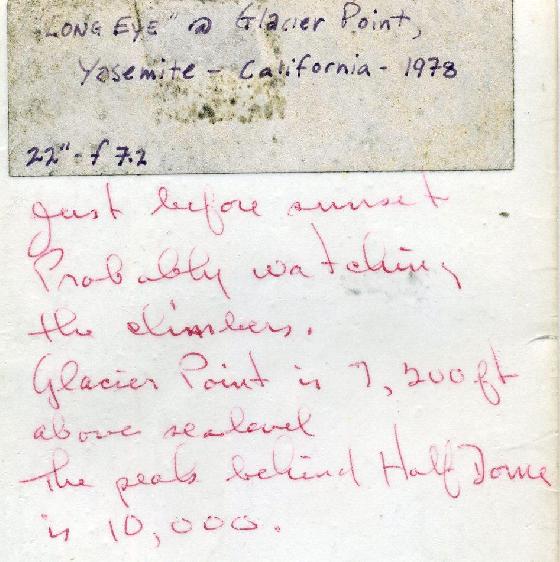 "LONG EYE" @ Glacier Point,
Yosemite - California - 1978
22" - f 7.2
Just before sunset
Probably watching
the climbers.
Glacier Point is 7,200 ft
above sealevel
The peaks behind Half Dome
is 10,000.